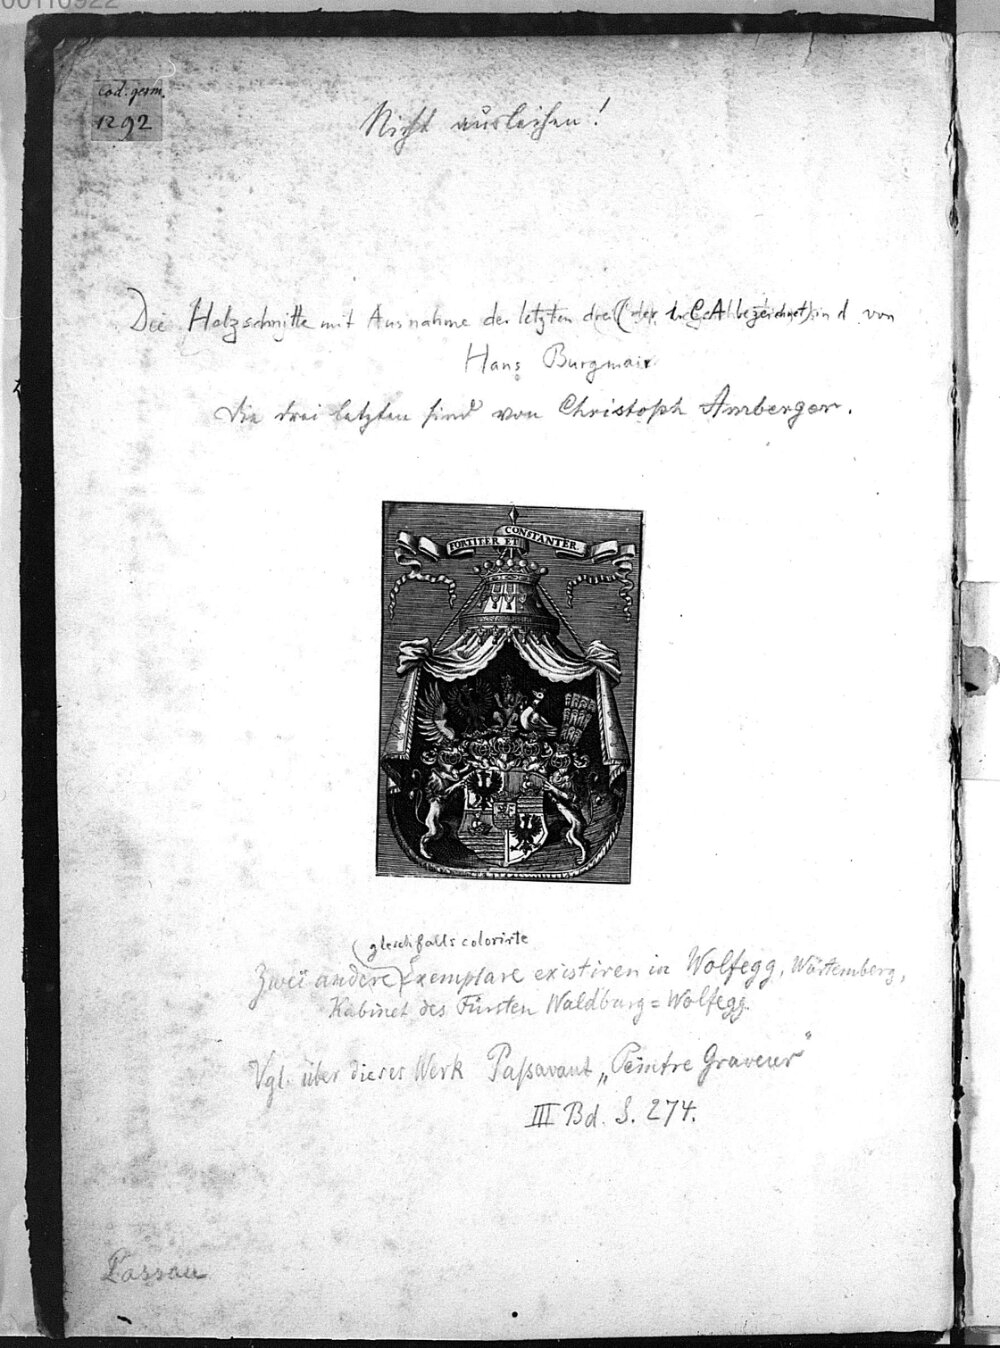 00110922
cod. germ.
1292
Nicht ausleihen!
Die Holzschnitte mit Ausnahme der letzten drei (der C A bezeichnet) sind von
Hans Burgmair
die drei letzten sind von Christoph Amberger.
FORTITER ET CONSTANTER.
gleichfalls colorirte
Zwei andere Exemplare existiren in Wolfegg, Würtemberg,
Kabinet des Fürsten Waldburg=Wolfegg.
Vgl. über dieses Werk Paſsavant „Peintre Graveur"
III Bd. S. 274.
Passau